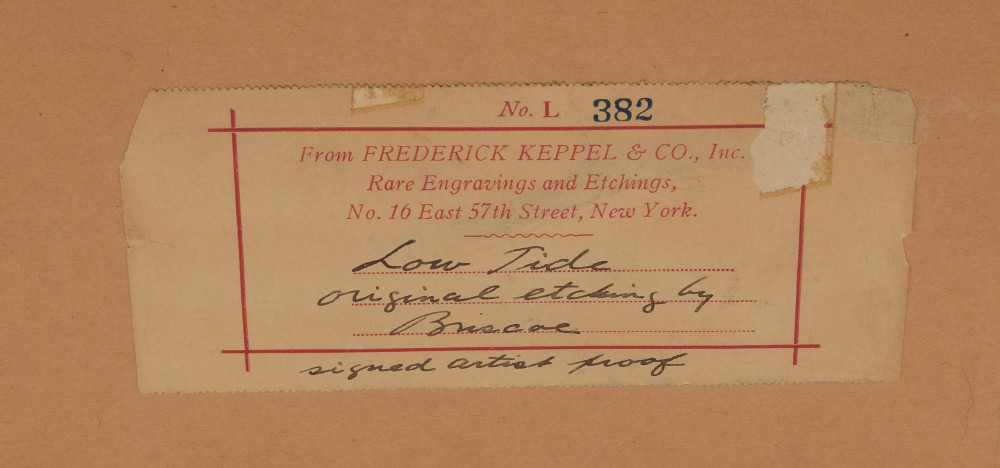 No. L 382
From FREDERICK KEPPEL & CO., Inc.
Rare Engravings and Etchings,
No. 16 East 57th Street, New York.
Low Tide
original etching by
Briscoe
signed artist proof